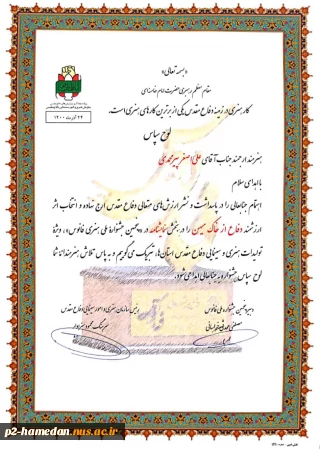 «بسمه تعالی»
مقام معظم رهبری حضرت امام خامنه‌ای
کار هنری در زمینه دفاع مقدس یکی از برترین کارهای هنری است.
۲۴ آذرماه ۱۴۰۰
لوح سپاس
هنرمند ارجمند جناب آقای علی اصغر
با اهدای سلام
اهتمام جنابعالی را در پاسداشت و نشر ارزش‌های متعالی دفاع مقدس ارج نهاده و انتخاب اثر
ارزشمند دفاع از خاک میهن را در بخش نمایشنامه در «پنجمین جشنواره ملی هنری فانوس»، ویژه
تولیدات هنری و سینمایی دفاع مقدس استان‌ها، تبریک می‌گوییم و به پاس تلاش هنرمندانه‌تان
لوح سپاس جشنواره به جنابعالی اهدا می‌شود.
دبیر پنجمین جشنواره ملی فانوس
رئیس سازمان هنری و امور سینمایی دفاع مقدس
p2-hamedan.nus.ac.ir